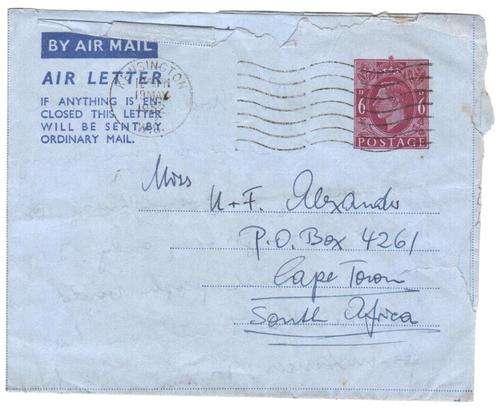 BY AIR MAIL
AIR LETTER
IF ANYTHING IS EN-
CLOSED THIS LETTER
WILL BE SENT BY
ORDINARY MAIL.
KENSINGTON
19 MAY
6 D 6 D
POSTAGE
Miss
U + F. Alexander
P.O. Box 4261
Cape Town
South Africa